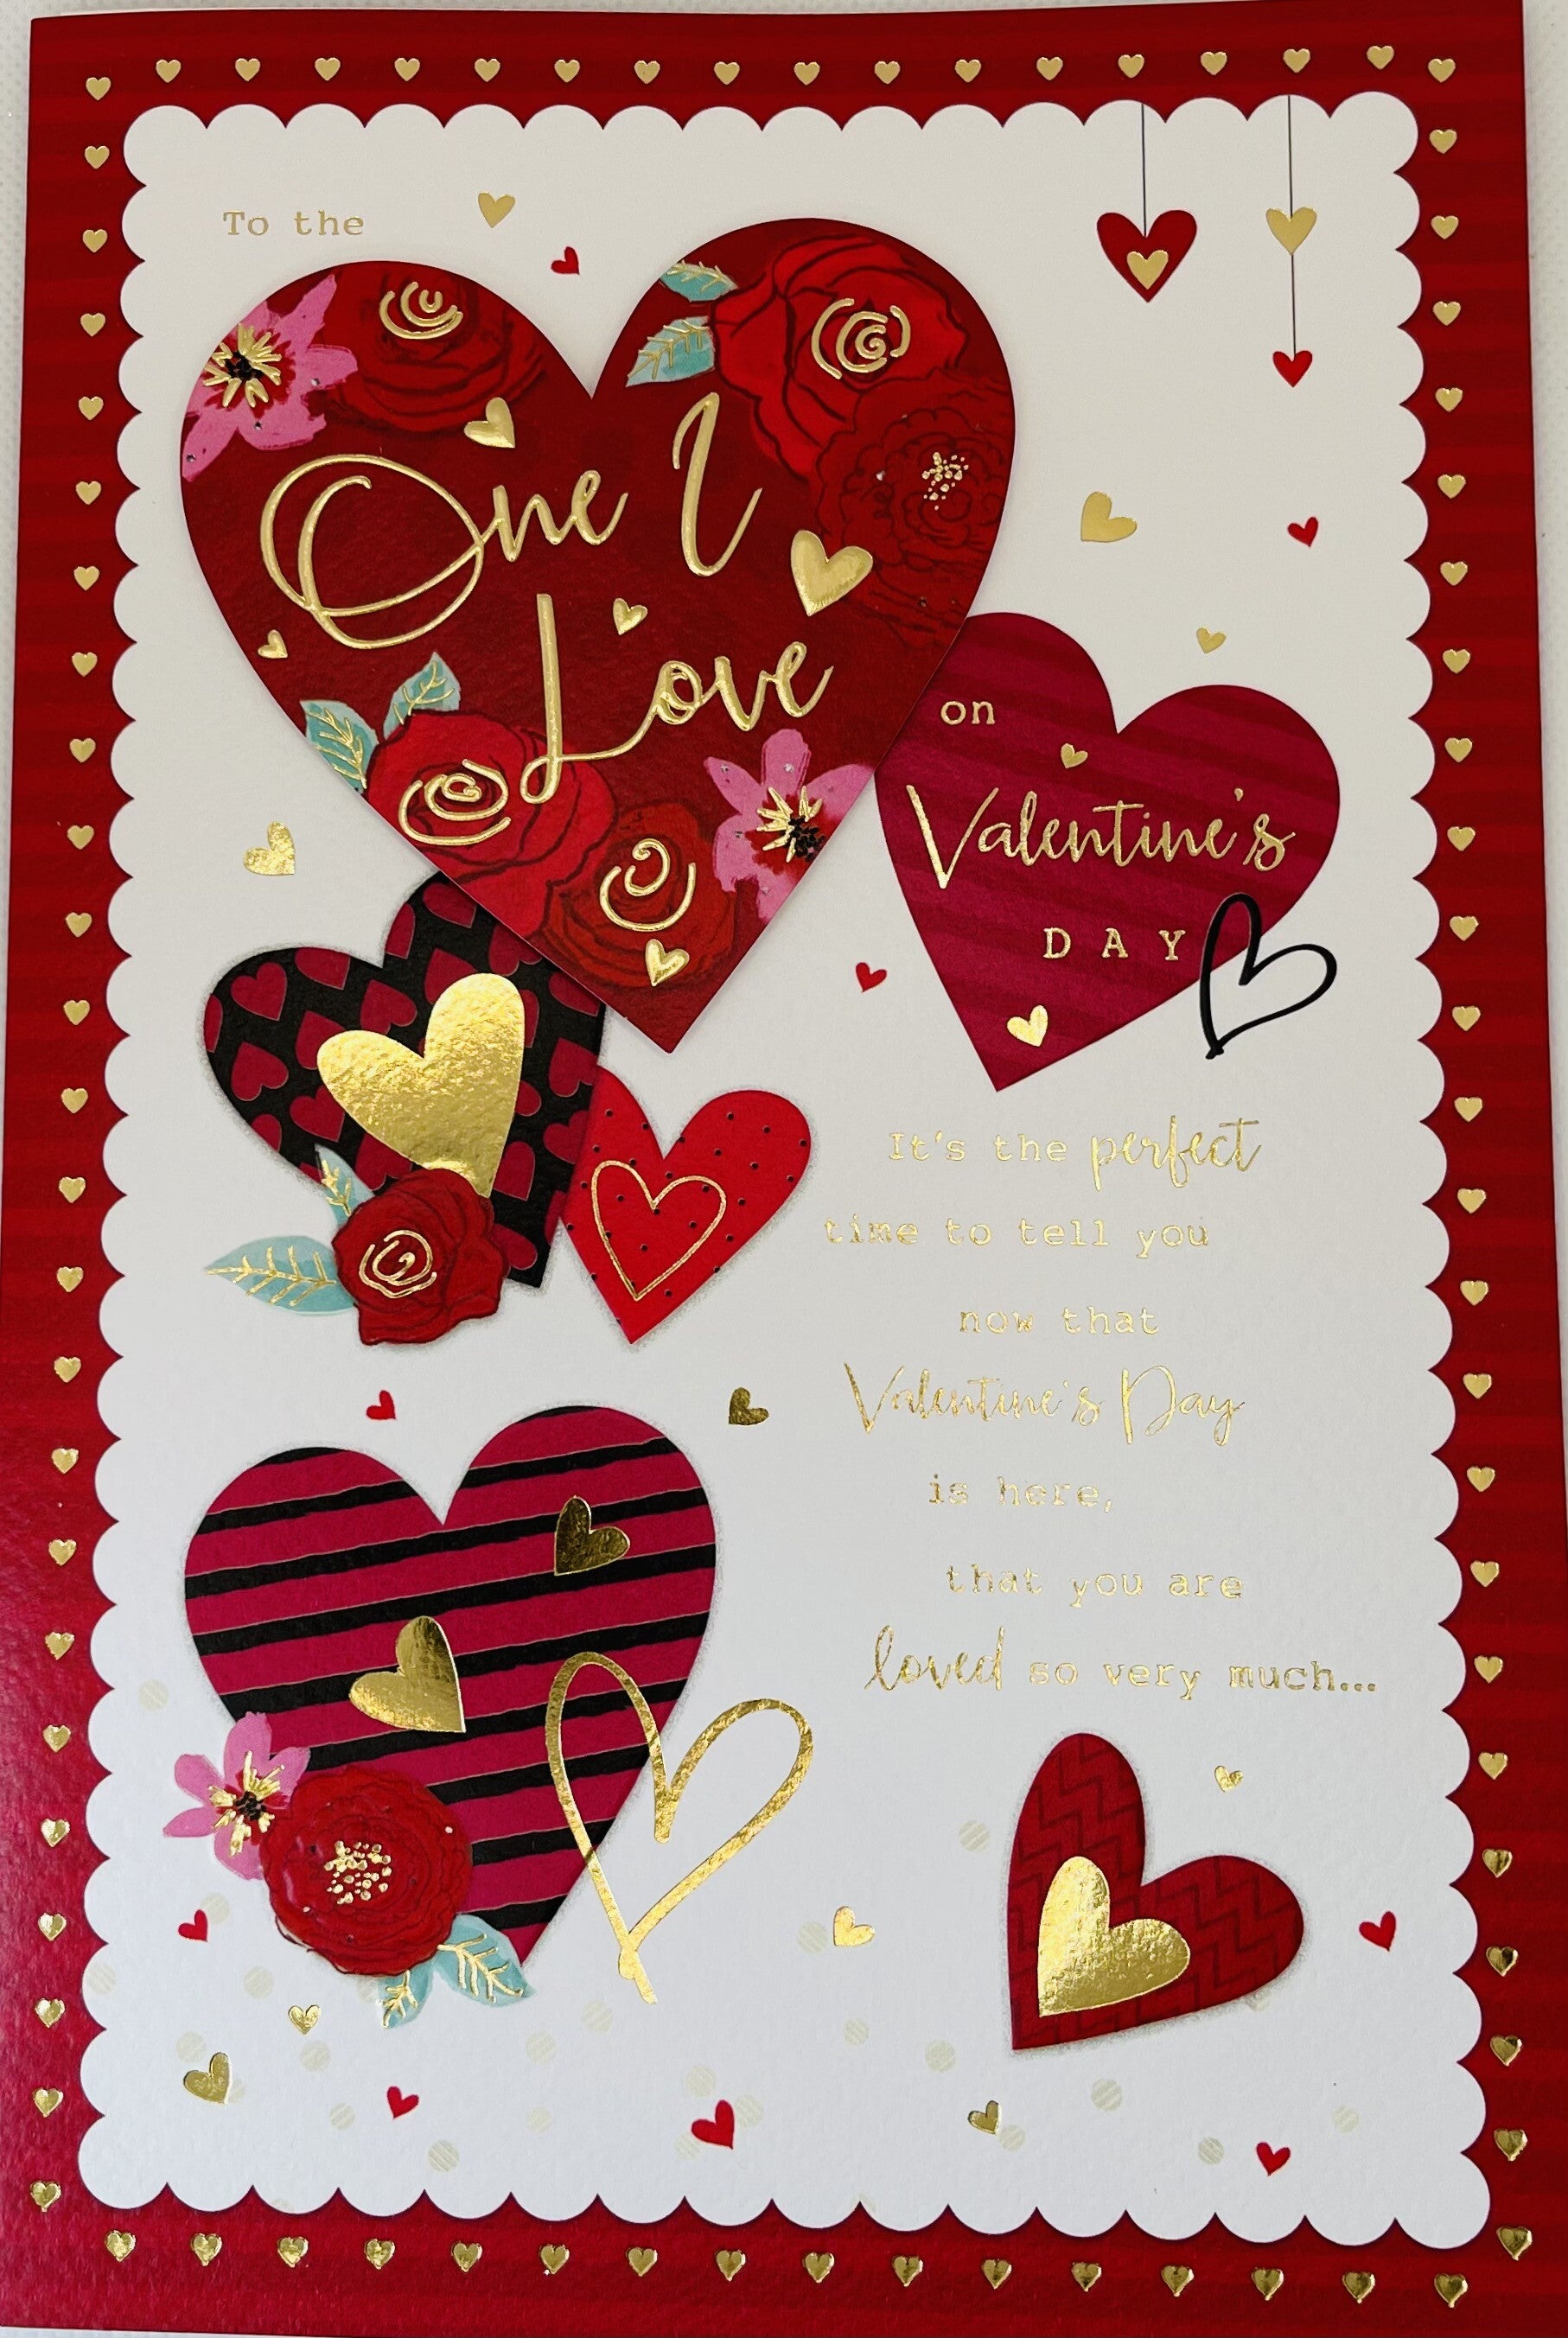 To the
One I
Love
on
Valentine's
DAY
It's the perfect
time to tell you
now that
Valentine's Day
is here,
that you are
loved so very much...